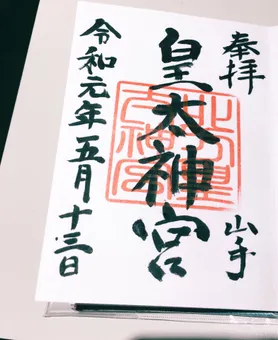 奉拝
山手
皇太神宮
令和元年五月十三日